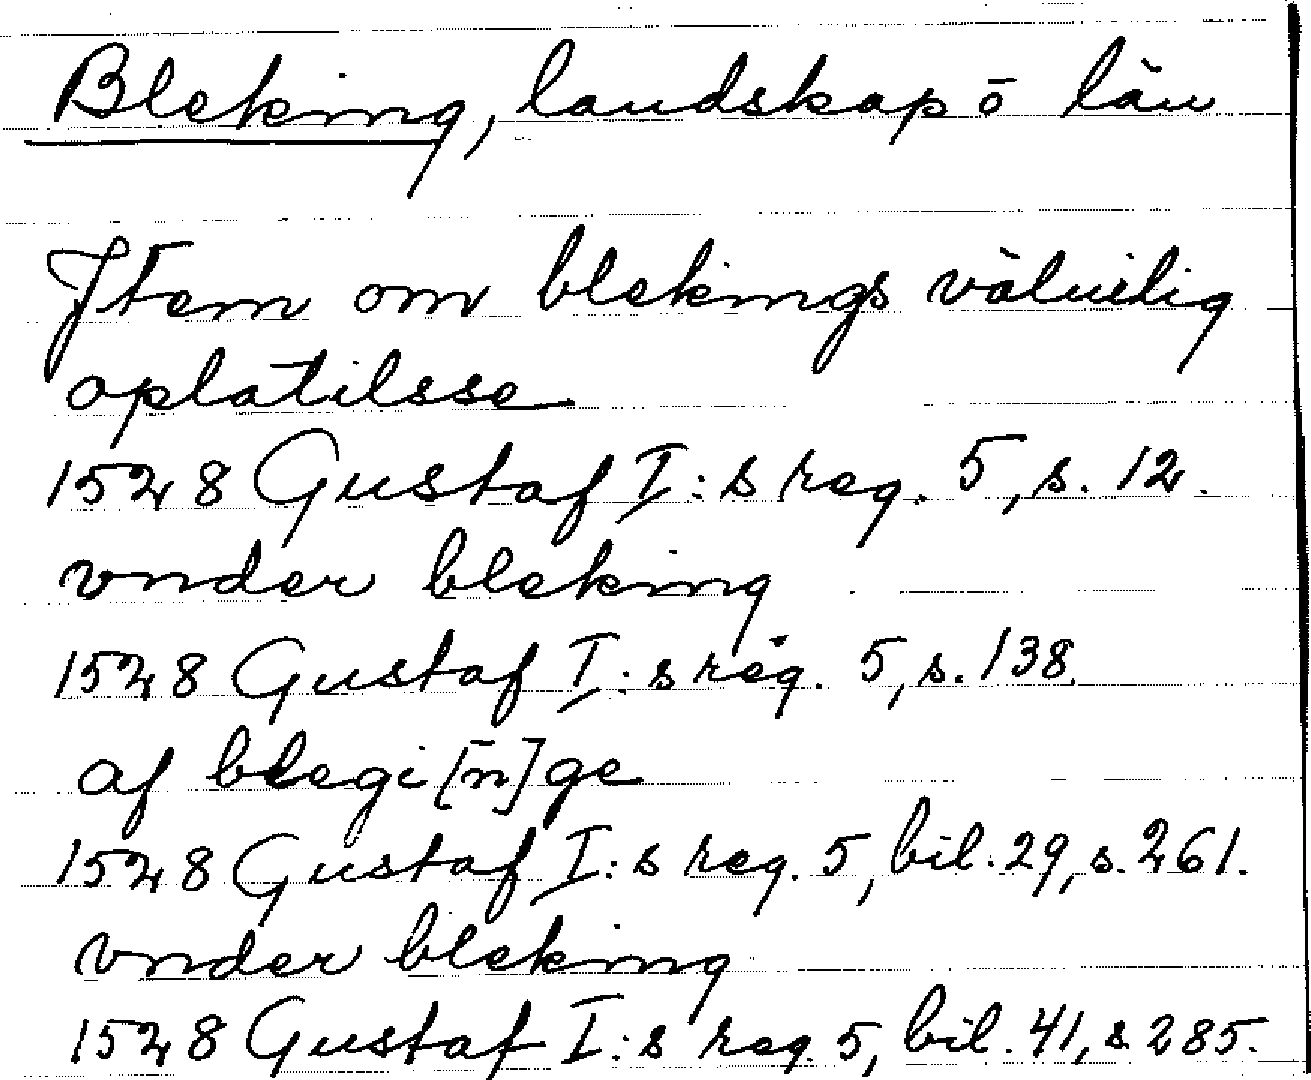 Bleking, landskap ō län
Jtem om blekings väluilig
oplatilsse
1528 Gustaf I:s reg. 5, s. 12.
vnder bleking
1528 Gustaf I:s reg. 5, s. 138.
af blegi[n]ge
1528 Gustaf I:s reg. 5, bil. 29, s. 261.
vnder bleking
1528 Gustaf I:s reg. 5, bil. 41, s. 285.